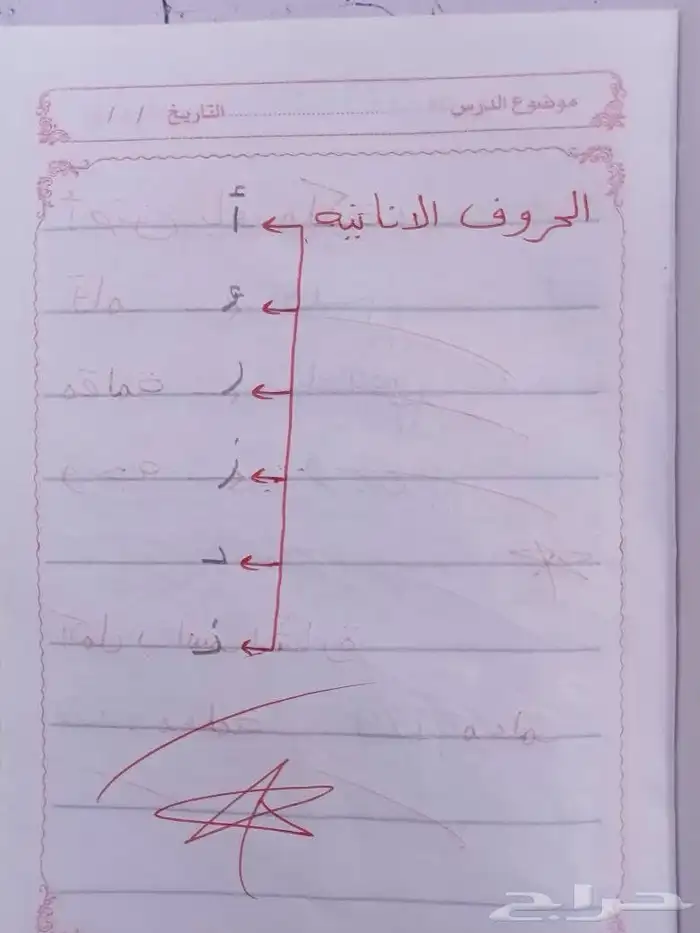 موضوع الدرس ........................ التاريخ / /
الحروف الانانيه
أ
و
ر
ز
د
ذ
حراج